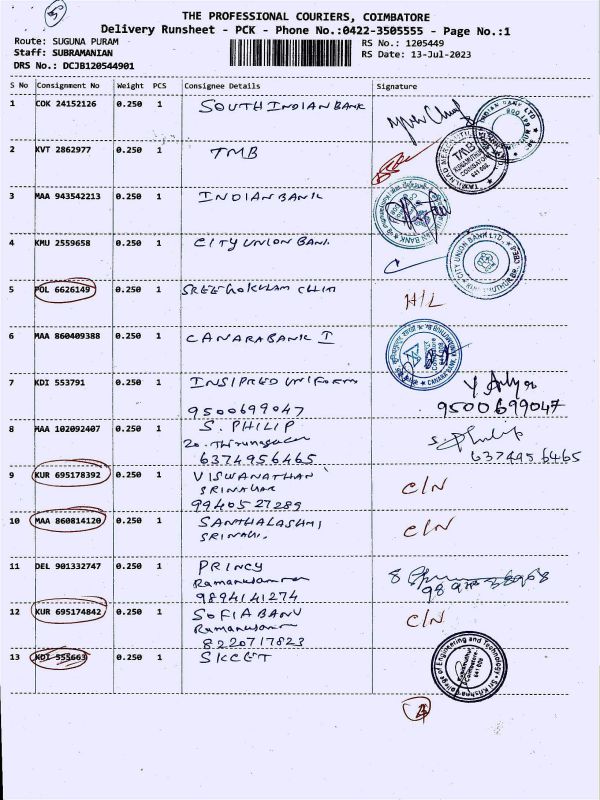 5
THE PROFESSIONAL COURIERS, COIMBATORE
Delivery Runsheet - PCK - Phone No.:0422-3505555 - Page No.:1
Route: SUGUNA PURAM
Staff: SUBRAMANIAN
DRS No.: DCJB120544901
RS No.: 1205449
RS Date: 13-Jul-2023
S No Consignment No Weight PCS Consignee Details Signature
1 COK 24152126 0.250 1 SOUTH INDIAN BANK
2 KVT 2862977 0.250 1 TMB
TMB
3 MAA 943542213 0.250 1 INDIAN BANK
4 KMU 2559658 0.250 1 CITY UNION BANK
CITY UNION BANK LTD.
5 POL 6626149 0.250 1 SREE GOKULAM CHIM H/L
6 MAA 860409388 0.250 1 CANARA BANK I
CANARA BANK
7 KDI 553791 0.250 1 INSIPRED UNIFORM
9500699047 9500699047
8 MAA 102092407 0.250 1 S. PHILIP
20.
6374956465 6374956465
9 KUR 695178392 0.250 1 VISWANATHAN C/N
SRINAGAR
9940527289
10 MAA 860814120 0.250 1 SANTHALASHMI C/N
11 DEL 901332747 0.250 1 PRINCY
9894141274
12 KUR 695174842 0.250 1 SOFIA BANU C/N
8220717823
13 KDI 555663 0.250 1 SKCET
Sri Krishna College of Engineering and Technology